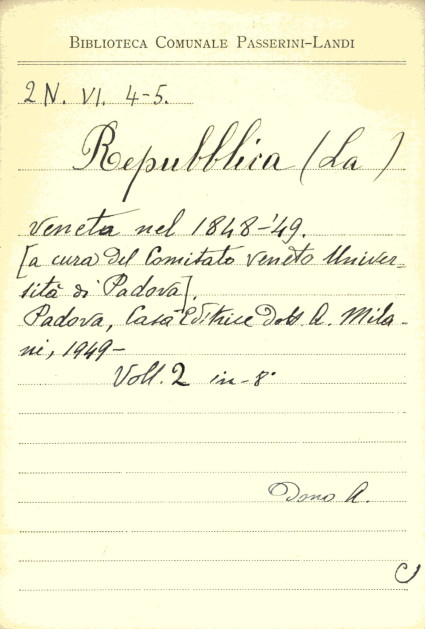 BIBLIOTECA COMUNALE PASSERINI-LANDI
2 N. VI. 4-5.
Repubblica (La)
veneta nel 1848-'49.
[a cura del Comitato veneto Univer-
sità di Padova].
Padova, Casa Editrice Dott. A. Mila-
ni, 1949-
Voll. 2 in-8°
Dono A.